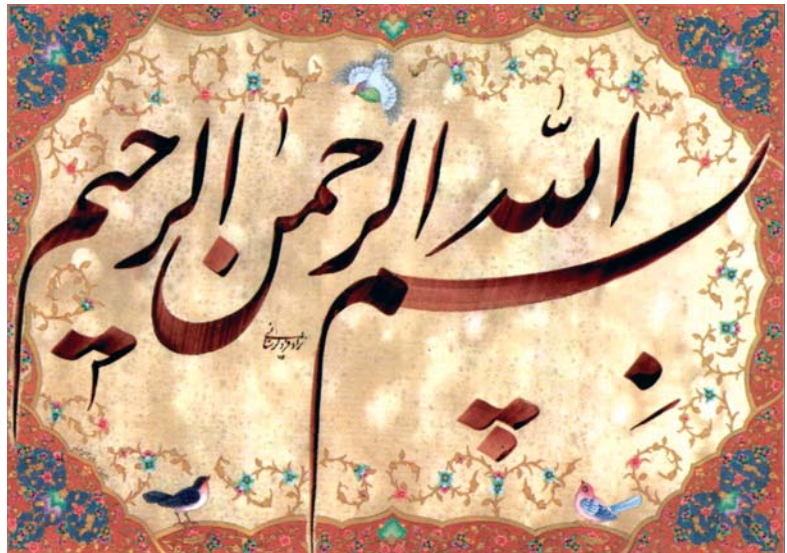 بِسم اللّٰه الرحمٰن الرحیم